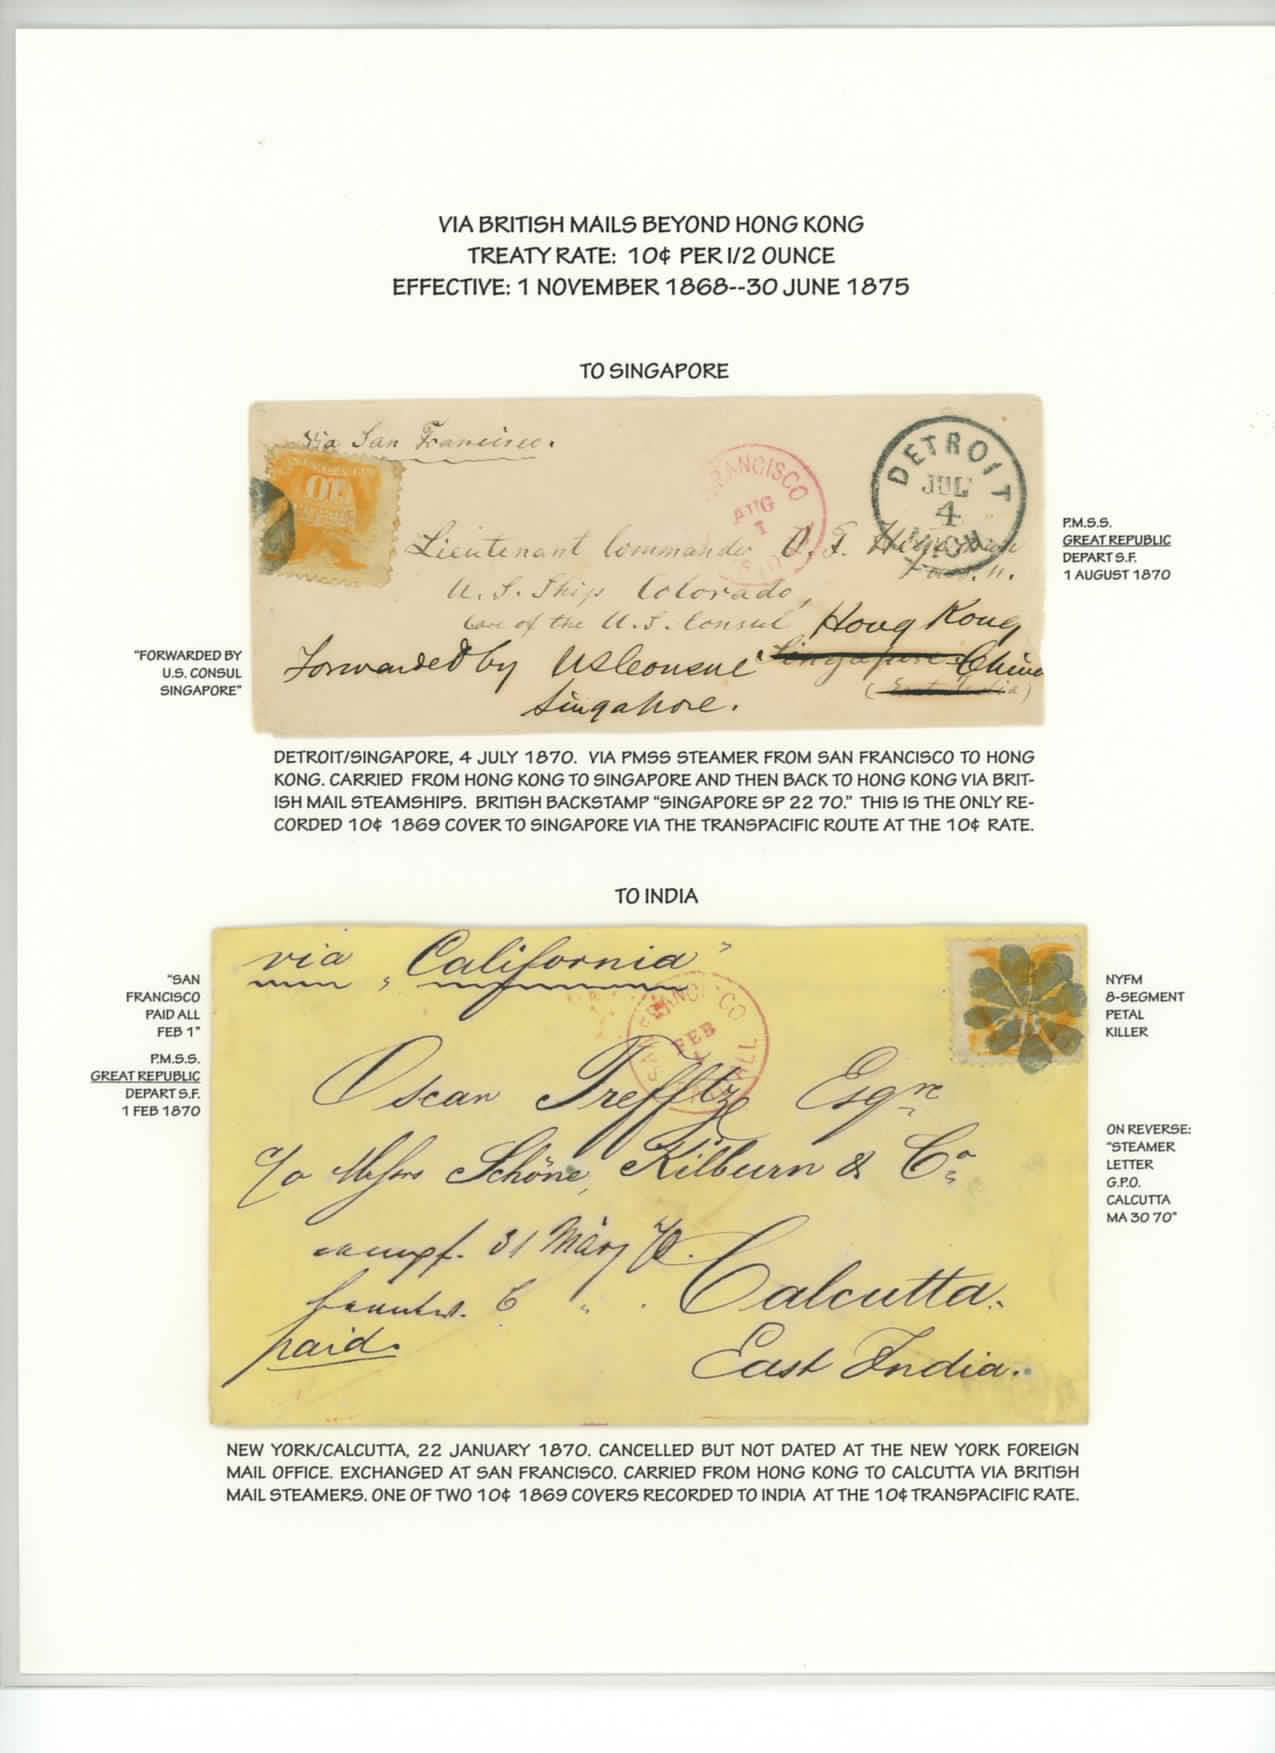 VIA BRITISH MAILS BEYOND HONG KONG
TREATY RATE: 10¢ PER 1/2 OUNCE
EFFECTIVE: 1 NOVEMBER 1868--30 JUNE 1875
TO SINGAPORE
via San Francisco.
10
FRANCISCO
AUG
1
DETROIT
JUL
4
MICH
Lieutenant Commander
U. S. Ship Colorado,
Care of the U. S. Consul Hong Kong
Forwarded by US Consul Singapore China
(East India)
Singapore.
P.M.S.S.
GREAT REPUBLIC
DEPART S.F.
1 AUGUST 1870
"FORWARDED BY
U.S. CONSUL
SINGAPORE"
DETROIT/SINGAPORE, 4 JULY 1870. VIA PMSS STEAMER FROM SAN FRANCISCO TO HONG
KONG. CARRIED FROM HONG KONG TO SINGAPORE AND THEN BACK TO HONG KONG VIA BRIT-
ISH MAIL STEAMSHIPS. BRITISH BACKSTAMP "SINGAPORE SP 22 70." THIS IS THE ONLY RE-
CORDED 10¢ 1869 COVER TO SINGAPORE VIA THE TRANSPACIFIC ROUTE AT THE 10¢ RATE.
TO INDIA
"SAN
FRANCISCO
PAID ALL
FEB 1"
P.M.S.S.
GREAT REPUBLIC
DEPART S.F.
1 FEB 1870
via "California"
SAN FRANCISCO
FEB
1
ALL
Oscar Trefftz Esqre
c/o Messrs Schöne, Kilburn & Co.
empf. 31 März 70.
beantw. 6 " .
Calcutta.
paid.
East India.
NYFM
8-SEGMENT
PETAL
KILLER
ON REVERSE:
"STEAMER
LETTER
G.P.O.
CALCUTTA
MA 30 70"
NEW YORK/CALCUTTA, 22 JANUARY 1870. CANCELLED BUT NOT DATED AT THE NEW YORK FOREIGN
MAIL OFFICE. EXCHANGED AT SAN FRANCISCO. CARRIED FROM HONG KONG TO CALCUTTA VIA BRITISH
MAIL STEAMERS. ONE OF TWO 10¢ 1869 COVERS RECORDED TO INDIA AT THE 10¢ TRANSPACIFIC RATE.